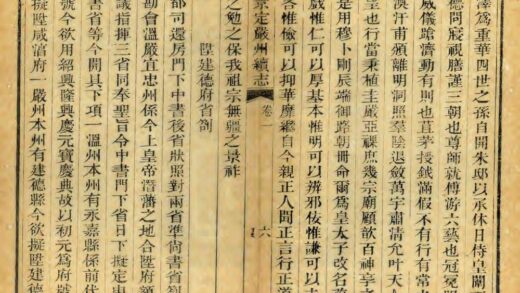 澤為重華四世之孫自開朱邸以承休日侍皇闈
德問寢視膳謹三朝也尊師就傅游六藝也冠冕
威儀蹌濟動有則也苴茅授鉞滿假不有行有常
渙汗甫頒離明洞照羣陰退斂萬宇肅清允叶天
皇也行當秉植圭嚴亞祼庶幾宗廟顧歆百神享
是用穆卜剛辰端御路朝冊命爾為皇太子改名
哉惟仁可以厚基本惟明可以辨邪佞惟謙可以
咨惟儉可以抑華靡繼自今親正人聞正言行正
之勉之保我祖宗無疆之景祚
景定嚴州續志 卷一 六
陞建德府省劄
都司還房門下中書後省狀照對兩省準尚書省
勘會溫嚴宜忠州係今上皇帝潛藩之地合陞府
議指揮三省同奉聖旨令中書門下省日下擬定
書省等今開具下項一溫州本州有永嘉縣係前代
號今欲用紹興隆興慶元寶慶典故以初元為府
擬陞咸淳府一嚴州本州有建德縣今欲擬陞建德